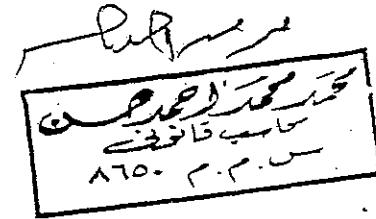 محمد محمد احمد حسن
محاسب قانونى
س . م . م ٨٦٥٠